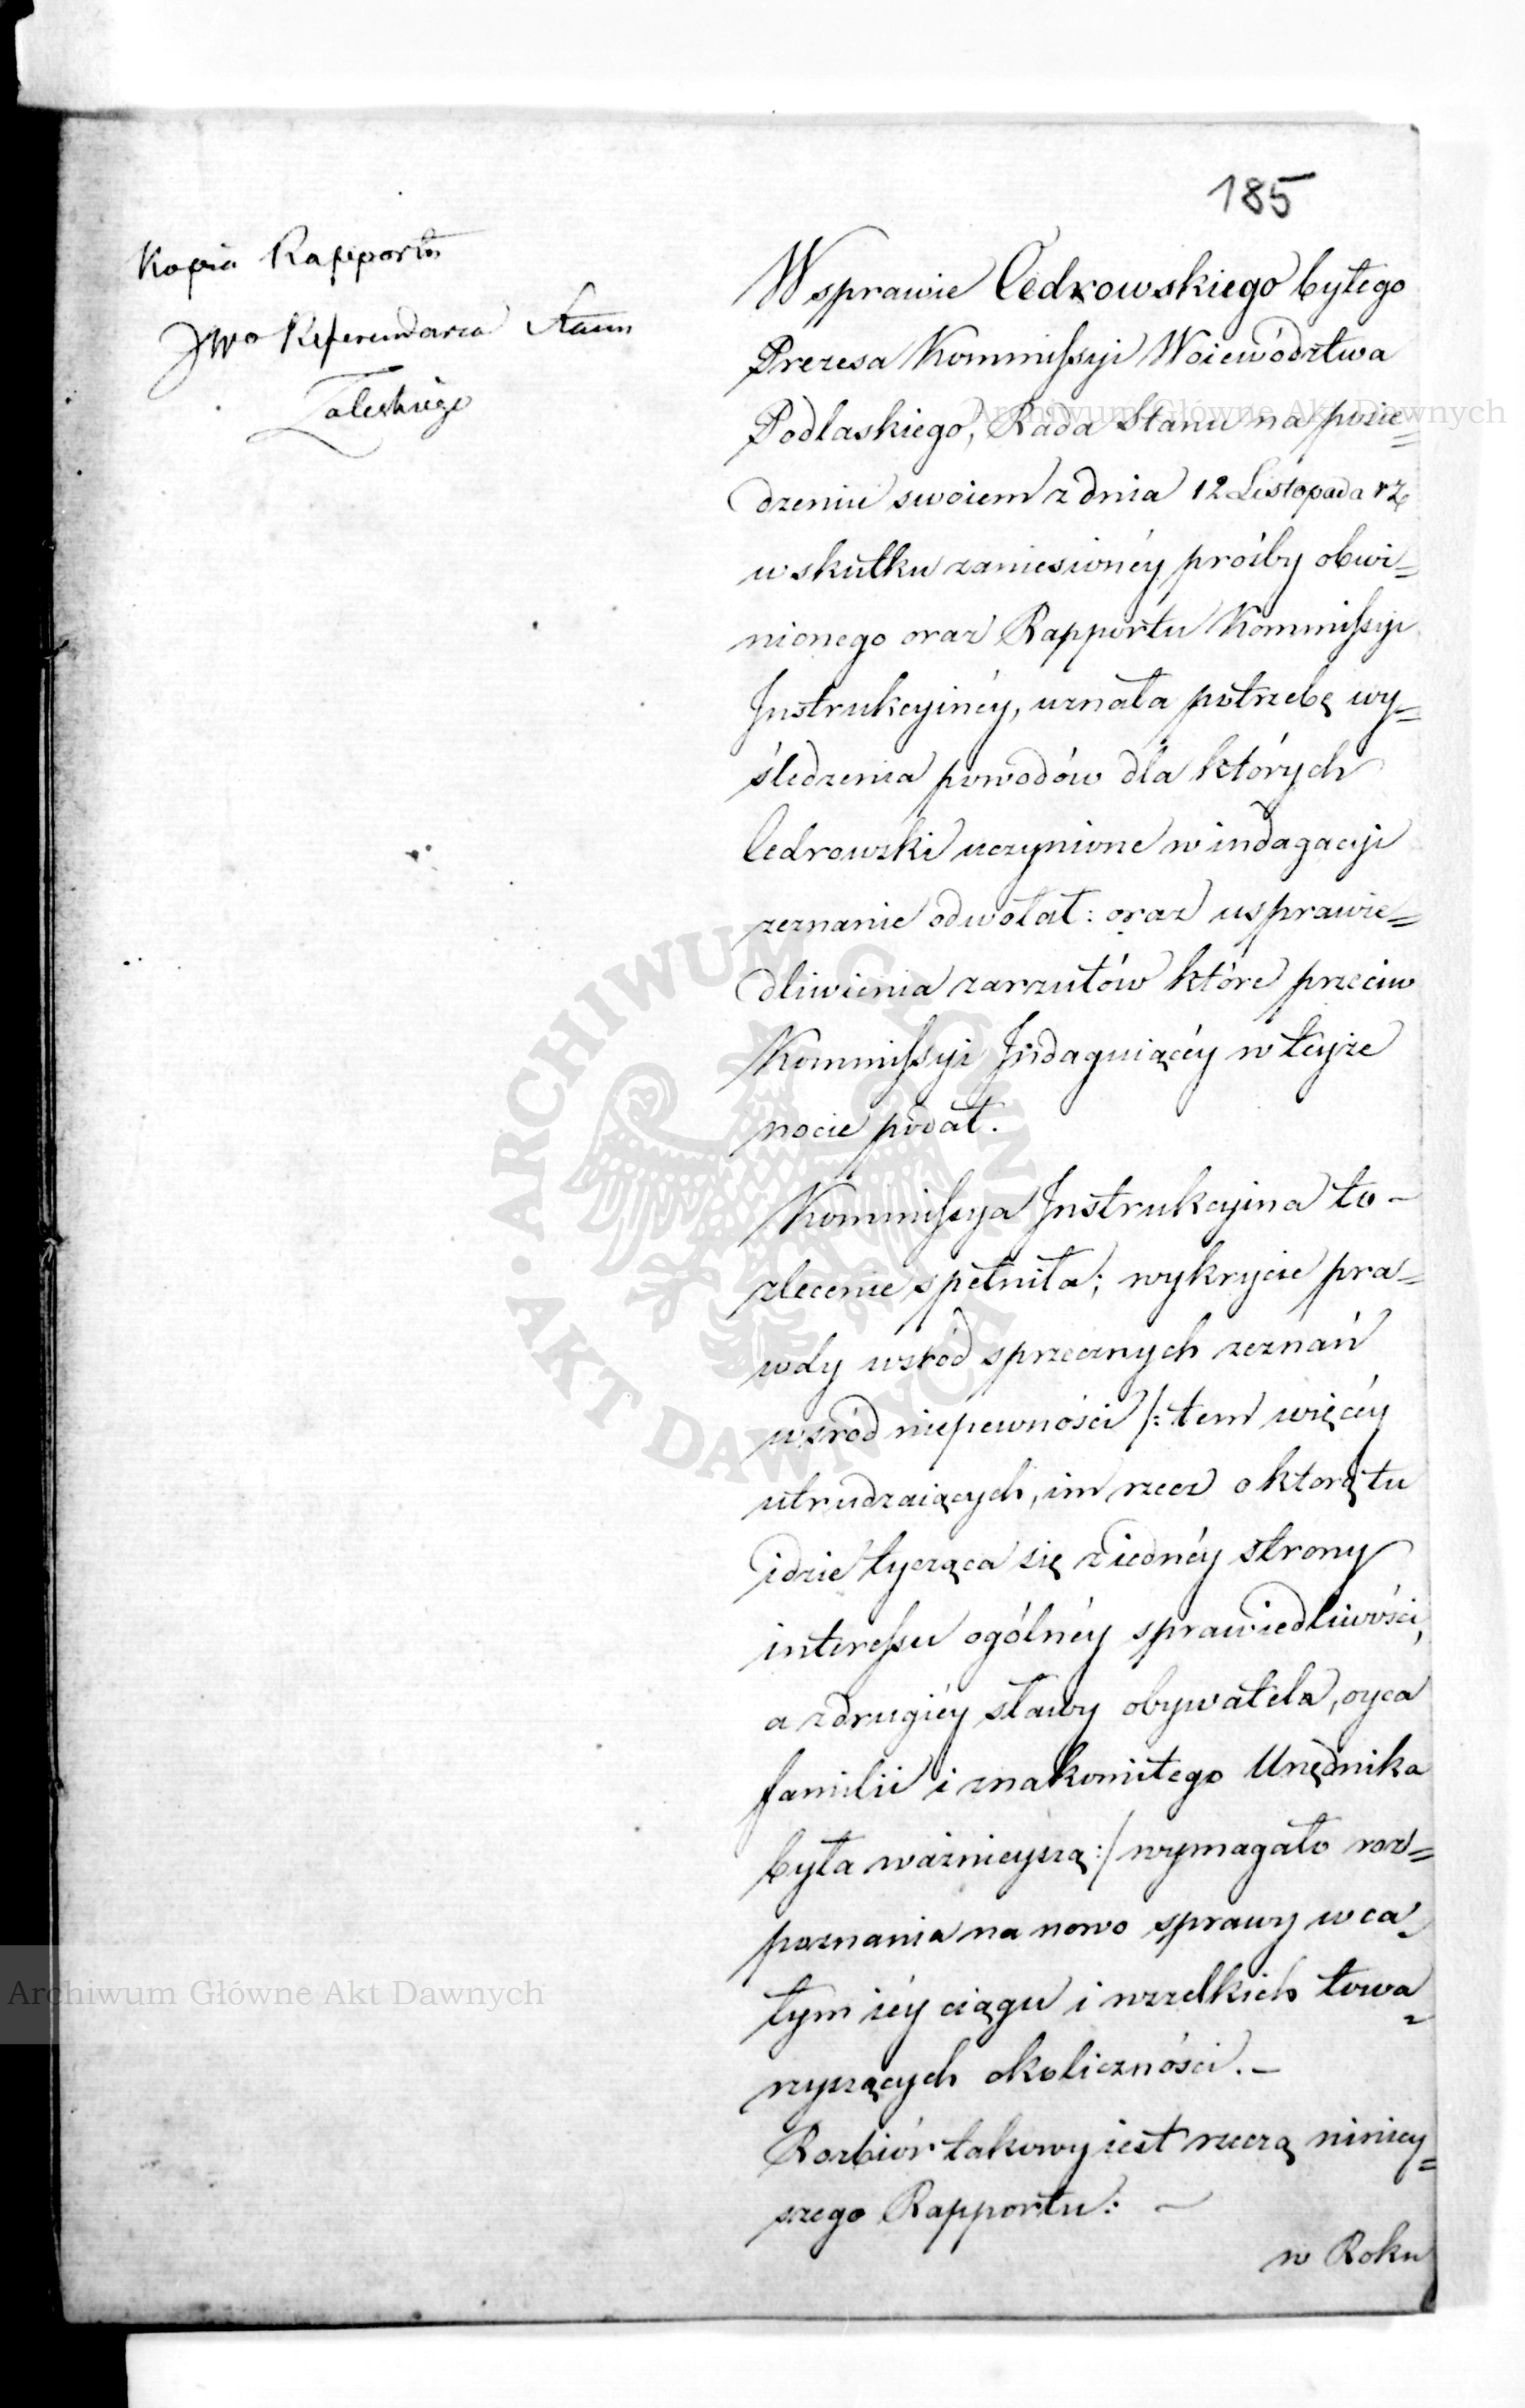 185
Kopia Rapportu
JWo Referendarza Stanu
Zaleskiego
W sprawie Cedrowskiego byłego
Prezesa Kommissyi Woiewództwa
Podlaskiego, Rada Stanu na posie=
dzeniu swoiem z dnia 12 Listopada rz
w skutku zaniesionéy prośby obwi=
nionego oraz Rapportu Kommissyi
Instrukcyinéy, uznała potrzebę wy=
śledzenia powodów dla których
Cedrowski uczynione w indagacyi
zeznanie odwołał: oraz usprawie=
dliwienia zarzutów które przeciw
Kommissyi Indaguiącéy w teyże
nocie podał.
Kommissya Instrukcyina to –
zlecenie spełniła; wykrycie pra=
wdy wśród sprzecznych zeznań
wśród niepewności /: tem więcéy
utrudzaiących, im rzecz o którą tu
idzie tycząca się z iednéy strony
interessu ogólnéy sprawiedliwości,
a z drugiéy sławy obywatela, oyca
familii i znakomitego Urzędnika
była ważnieyszą :/ wymagało roz=
poznania na nowo sprawy w ca=
łym iéy ciągu i wszelkich towa=
rzyszących okoliczności. –
Rozbiór takowy iest rzeczą niniey=
szego Rapportu: –
w Roku
Archiwum Główne Akt Dawnych
ARCHIWUM GŁÓWNE · AKT DAWNYCH
Archiwum Główne Akt Dawnych